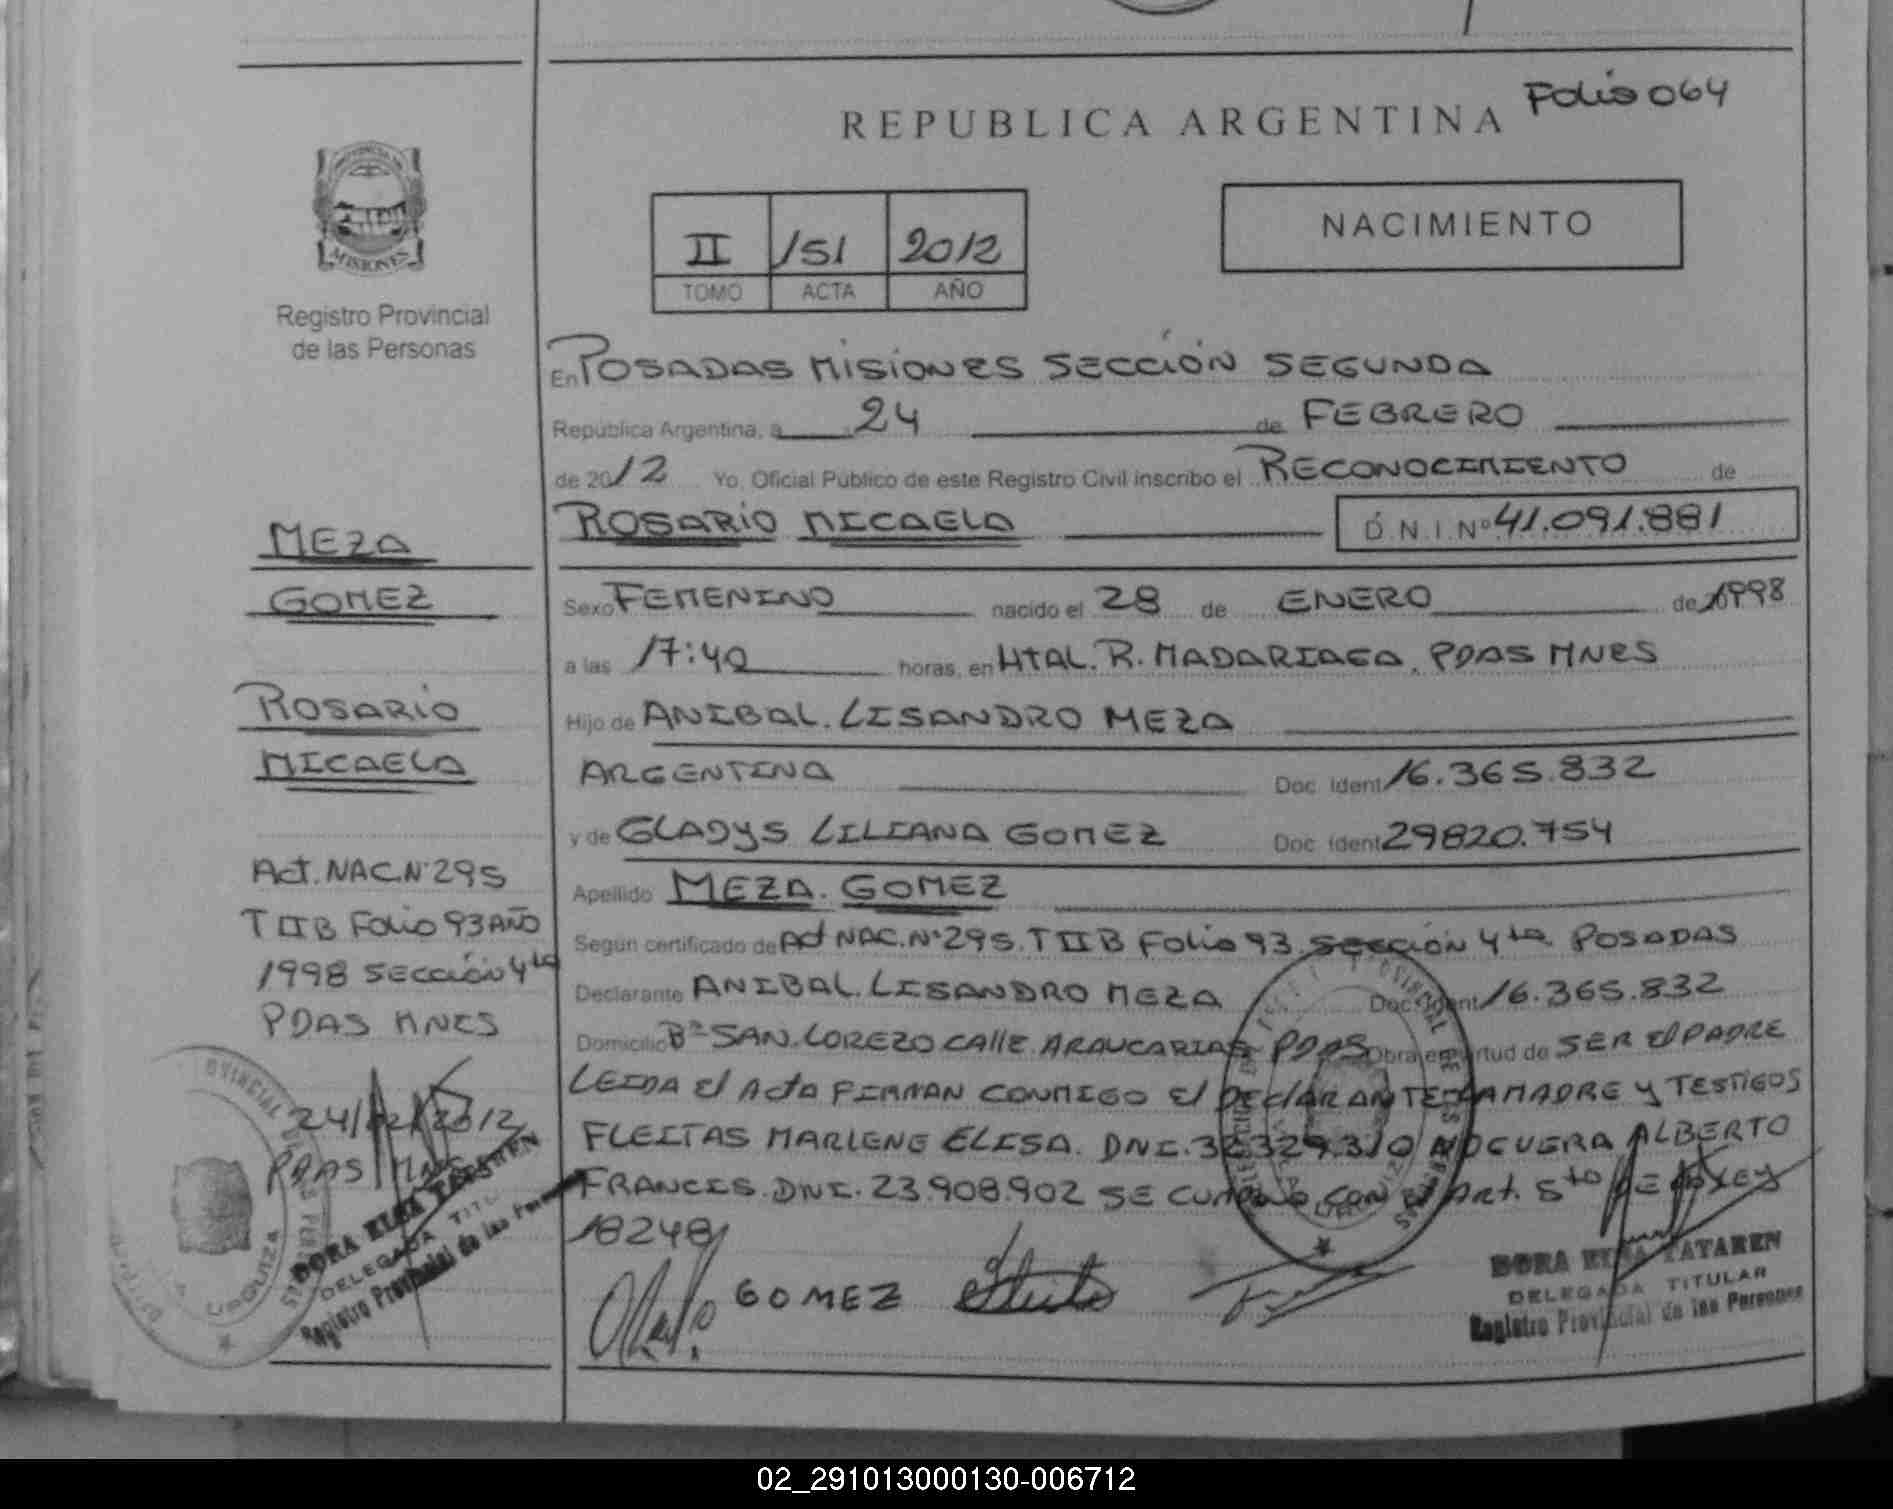 Folio 064
REPUBLICA ARGENTINA
PROVINCIA DE
MISIONES
Registro Provincial
de las Personas
II 151 2012
TOMO ACTA AÑO
NACIMIENTO
En POSADAS MISIONES SECCIÓN SEGUNDA
República Argentina, a 24 de FEBRERO
de 2012 Yo, Oficial Público de este Registro Civil inscribo el RECONOCIMIENTO de
ROSARIO MICAELA D.N.I. Nº 41.091.881
Sexo FEMENINO nacido el 28 de ENERO de 1998
a las 17:40 horas, en HTAL. R. MADARIAGA. PDAS MNES
Hijo de ANIBAL. LISANDRO MEZA
ARGENTINA Doc. Ident 16.365.832
y de GLADYS LILIANA GOMEZ Doc. Ident 29820.754
Apellido MEZA. GOMEZ
Según certificado de Act NAC. Nº 295. T II B Folio 93. SECCIÓN 4ta POSADAS
Declarante ANIBAL. LISANDRO MEZA Doc. Ident 16.365.832
Domicilio Bº SAN. LOREZO CAllE ARAUCARIAS PDAS Obra en virtud de SER El PADRE
LEIDA El Acta FIRMAN CONMIGO El DEClARANTE LA MADRE y TESTIGOS
FLEITAS MARLENE ELISA. DNI. 32.329.310 NOGUERA ALBERTO
FRANCIS. DNI. 23.908.902 SE CUMPLIO CON El Art. 5to DE LA LEY
18248
GOMEZ
DORA ELSA TATAREN
DELEGADA TITULAR
Registro Provincial de las Personas
MEZA
GOMEZ
ROSARIO
MICAELA
Act. NAC. Nº 295
T II B Folio 93 AÑO
1998 SECCIÓN 4ta
PDAS MNES
24/02/2012
PDAS MNES
DORA ELSA TATAREN
DELEGADA TITU
Registro Provincial de las Personas
02_291013000130-006712